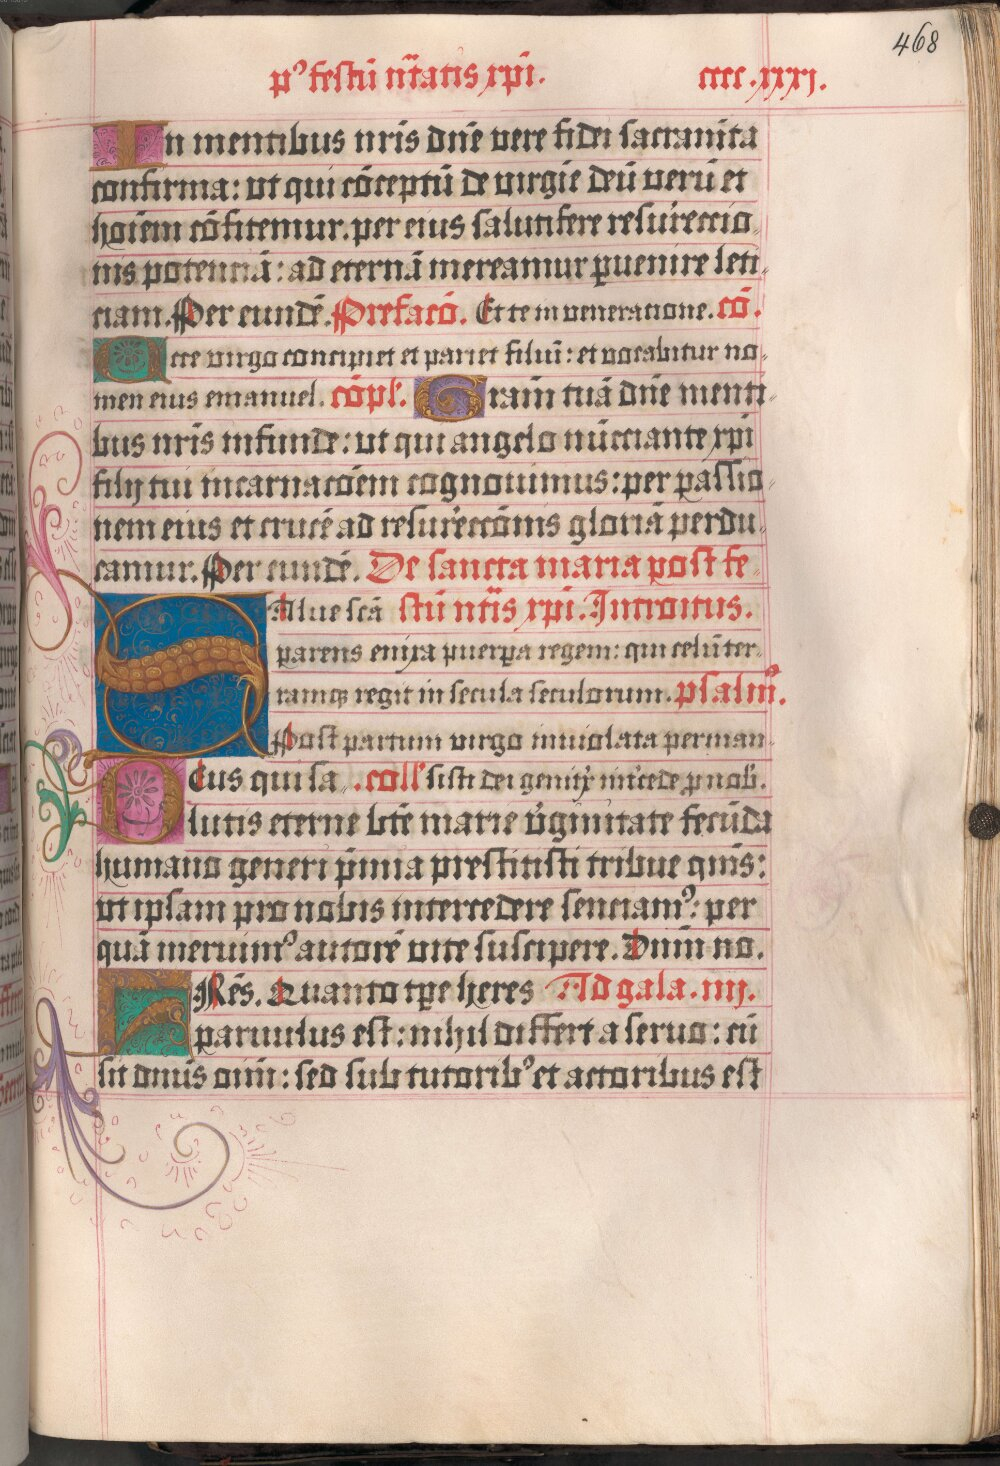 468
pꝰ festū nr̄atis xpi. cccc.xxxj.
In mentibus nr̄is dn̄e vere fidei sacramēta
confirma: vt qui cōceptū de virgīe deū verū et
hoīem cōfitemur. per eius salutifere resurreccio⸗
nis potenciā: ad eternā mereamur ꝑuenire leti⸗
ciam. Per eundē. Prefacō. Et te in veneracione. cō.
Ecce virgo concipiet et pariet filiū: et vocabitur no⸗
men eius emanuel. cōpl'. Graīn tuā dn̄e menti⸗
bus nr̄is infunde: vt qui angelo nūcciante xpi
filij tui incarnacōem cognouimus: per passio⸗
nem eius et crucē ad resurreccōnis gloriā perdu⸗
camur. Per eundē. De sancta maria post fe⸗
SAlue scā stū nr̄is xpi. Introitus.
parens enixa puerpa regem: qui celū ter⸗
ramqꝫ regit in secula seculorum. psalm̄.
Post partum virgo inuiolata perman⸗
DEus qui sa⸗ .coll' sisti dei genitx̄ int̄cede ꝓ nob'.
lutis eterne bt̄e marie v̄ginitate fecūda
humano generi p̄mia prestitisti tribue qm̄s:
vt ipsam pro nobis intercedere senciamꝰ: per
quā meruimꝰ autorē vite suscipere. Dnm̄ no.
FRēs. Quanto tꝑe heres Ad gala. iiij.
paruulus est: nihil differt a seruo: cū
sit dn̄us oim̄: sed sub tutoribꝰ et actoribus est